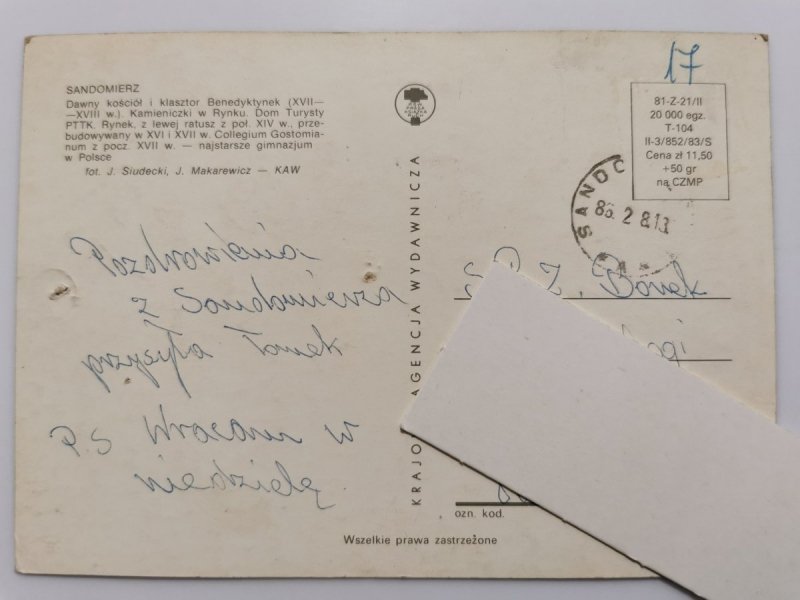 17
SANDOMIERZ
Dawny kościół i klasztor Benedyktynek (XVII—
—XVIII w.). Kamieniczki w Rynku. Dom Turysty
PTTK. Rynek, z lewej ratusz z poł. XIV w., prze-
budowywany w XVI i XVII w. Collegium Gostomia-
num z pocz. XVII w. — najstarsze gimnazjum
w Polsce
fot. J. Siudecki, J. Makarewicz — KAW
81-Z-21/II
20 000 egz.
T-104
II-3/852/83/S
Cena zł 11,50
+50 gr
na CZMP
SANDO
Pozdrowienia
z Sandomierza
przysyła Tomek
P.S Wracam w
niedzielę
KRAJO AGENCJA WYDAWNICZA
Z. Bonek
ozn. kod.
Wszelkie prawa zastrzeżone